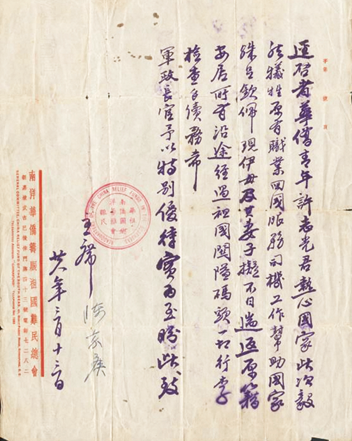 逕啟者華僑青年許志光君熱心國家此次毅
然犧牲原有職業回國服務司機工作幫助國家
殊足欽佩現伊母及其妻子擬不日遄返原籍
安居所有沿途經過祖國關隘碼頭一切行李
檢查手續務希
軍政長官予以特別優待實為至盼此致
主席
廿八年三月十三日
南洋華僑籌賑祖國難民總會